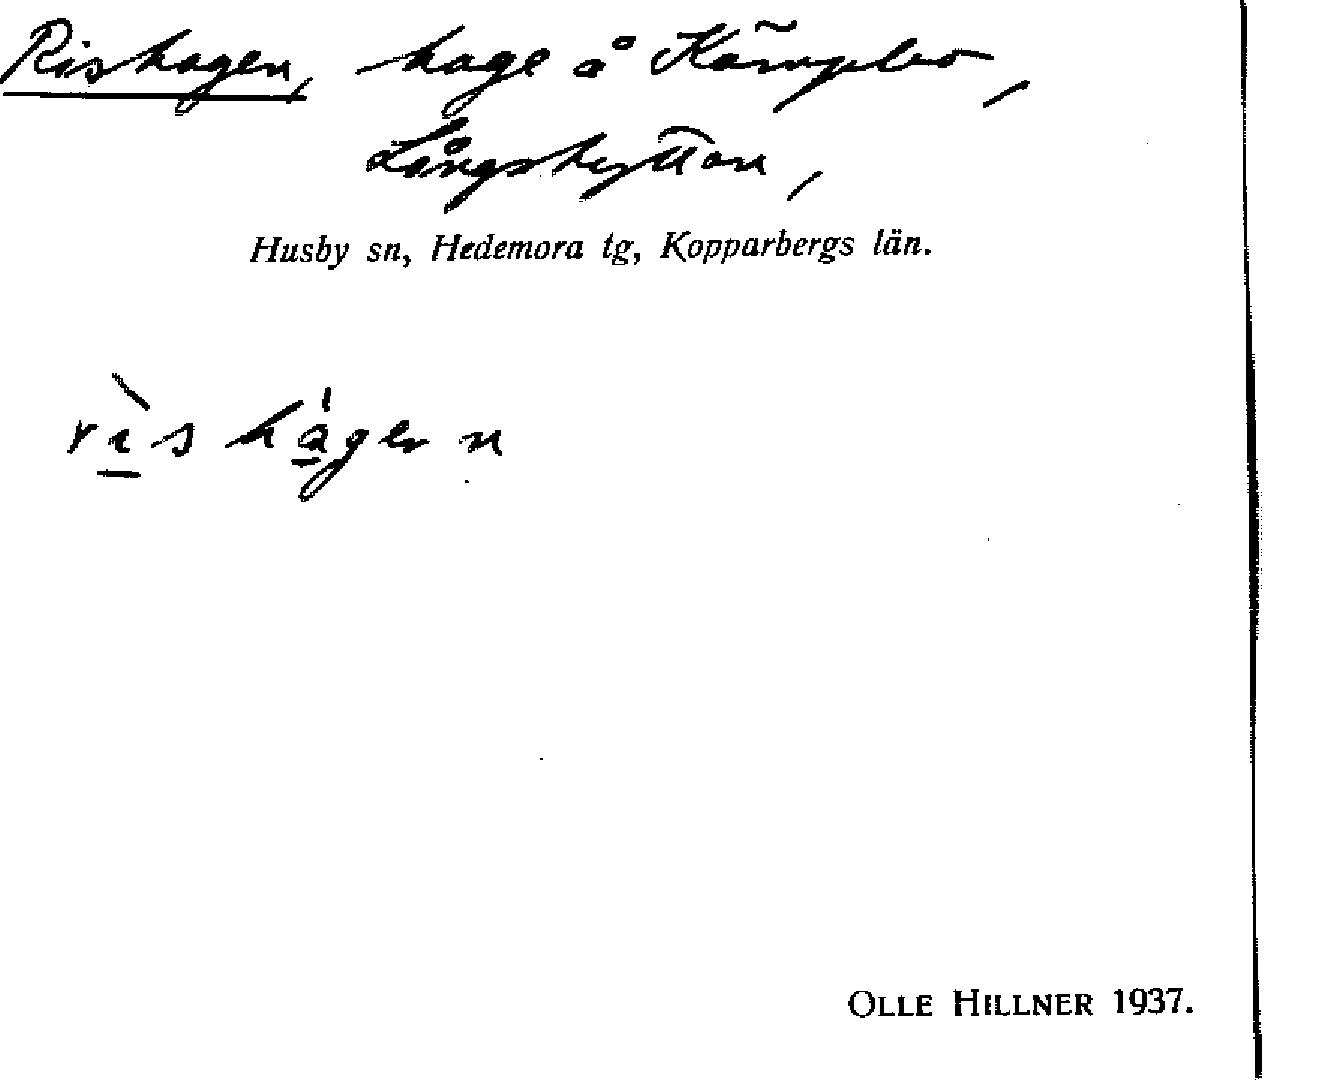 Rishagen, hage å Kämpbo,
Långshyttan,
Husby sn, Hedemora tg, Kopparbergs län.
rìs hágen
OLLE HILLNER 1937.